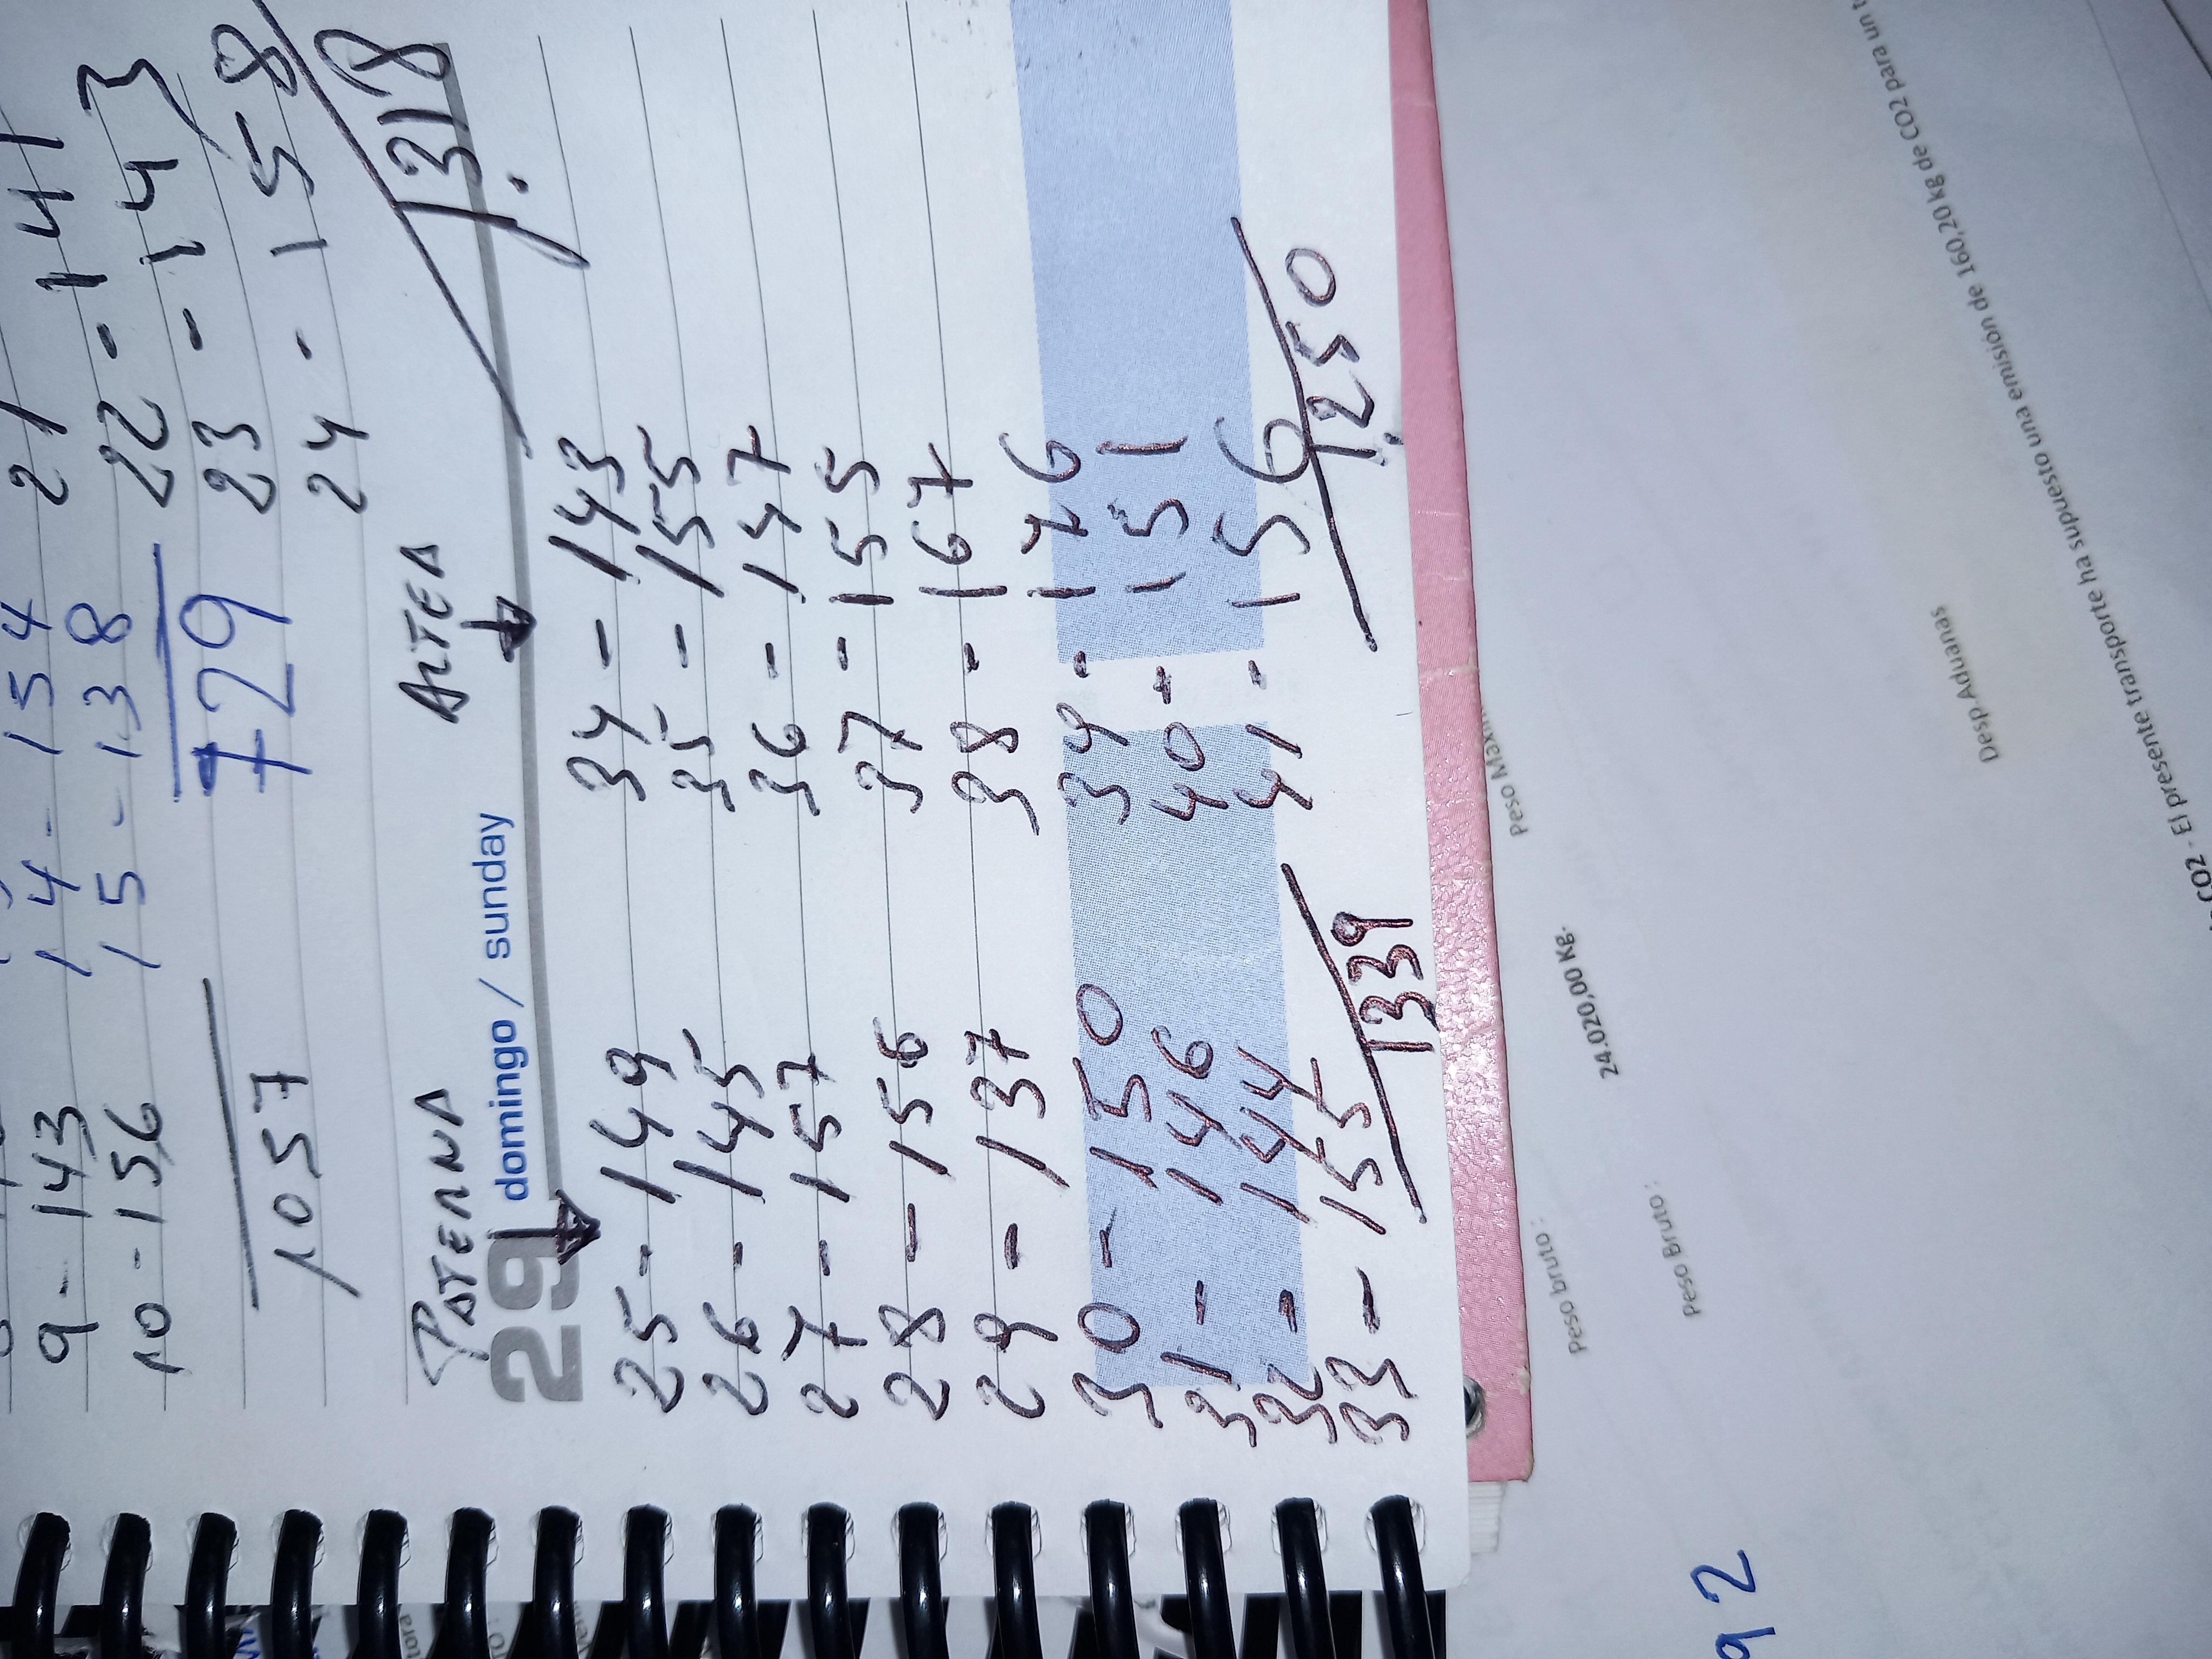 9 - 143
10 - 156
1057
14 - 154
15 - 138
729
21 141
22 - 143
23 - 158
24 -
1318
PATERNA
29 domingo / sunday
25 - 149
26 - 145
27 - 157
28 - 156
29 - 137
30 - 150
31 - 146
32 - 144
33 - 155
1339
ALTEA
34 - 143
35 - 155
36 - 147
37 - 155
38 - 167
39 - 176
40 - 151
41 - 156
1.250
Peso bruto :
24.020,00 Kg.
Peso Bruto :
Desp.Aduanas
CO2 - El presente transporte ha supuesto una emisión de 160,20 kg de CO2 para un
92